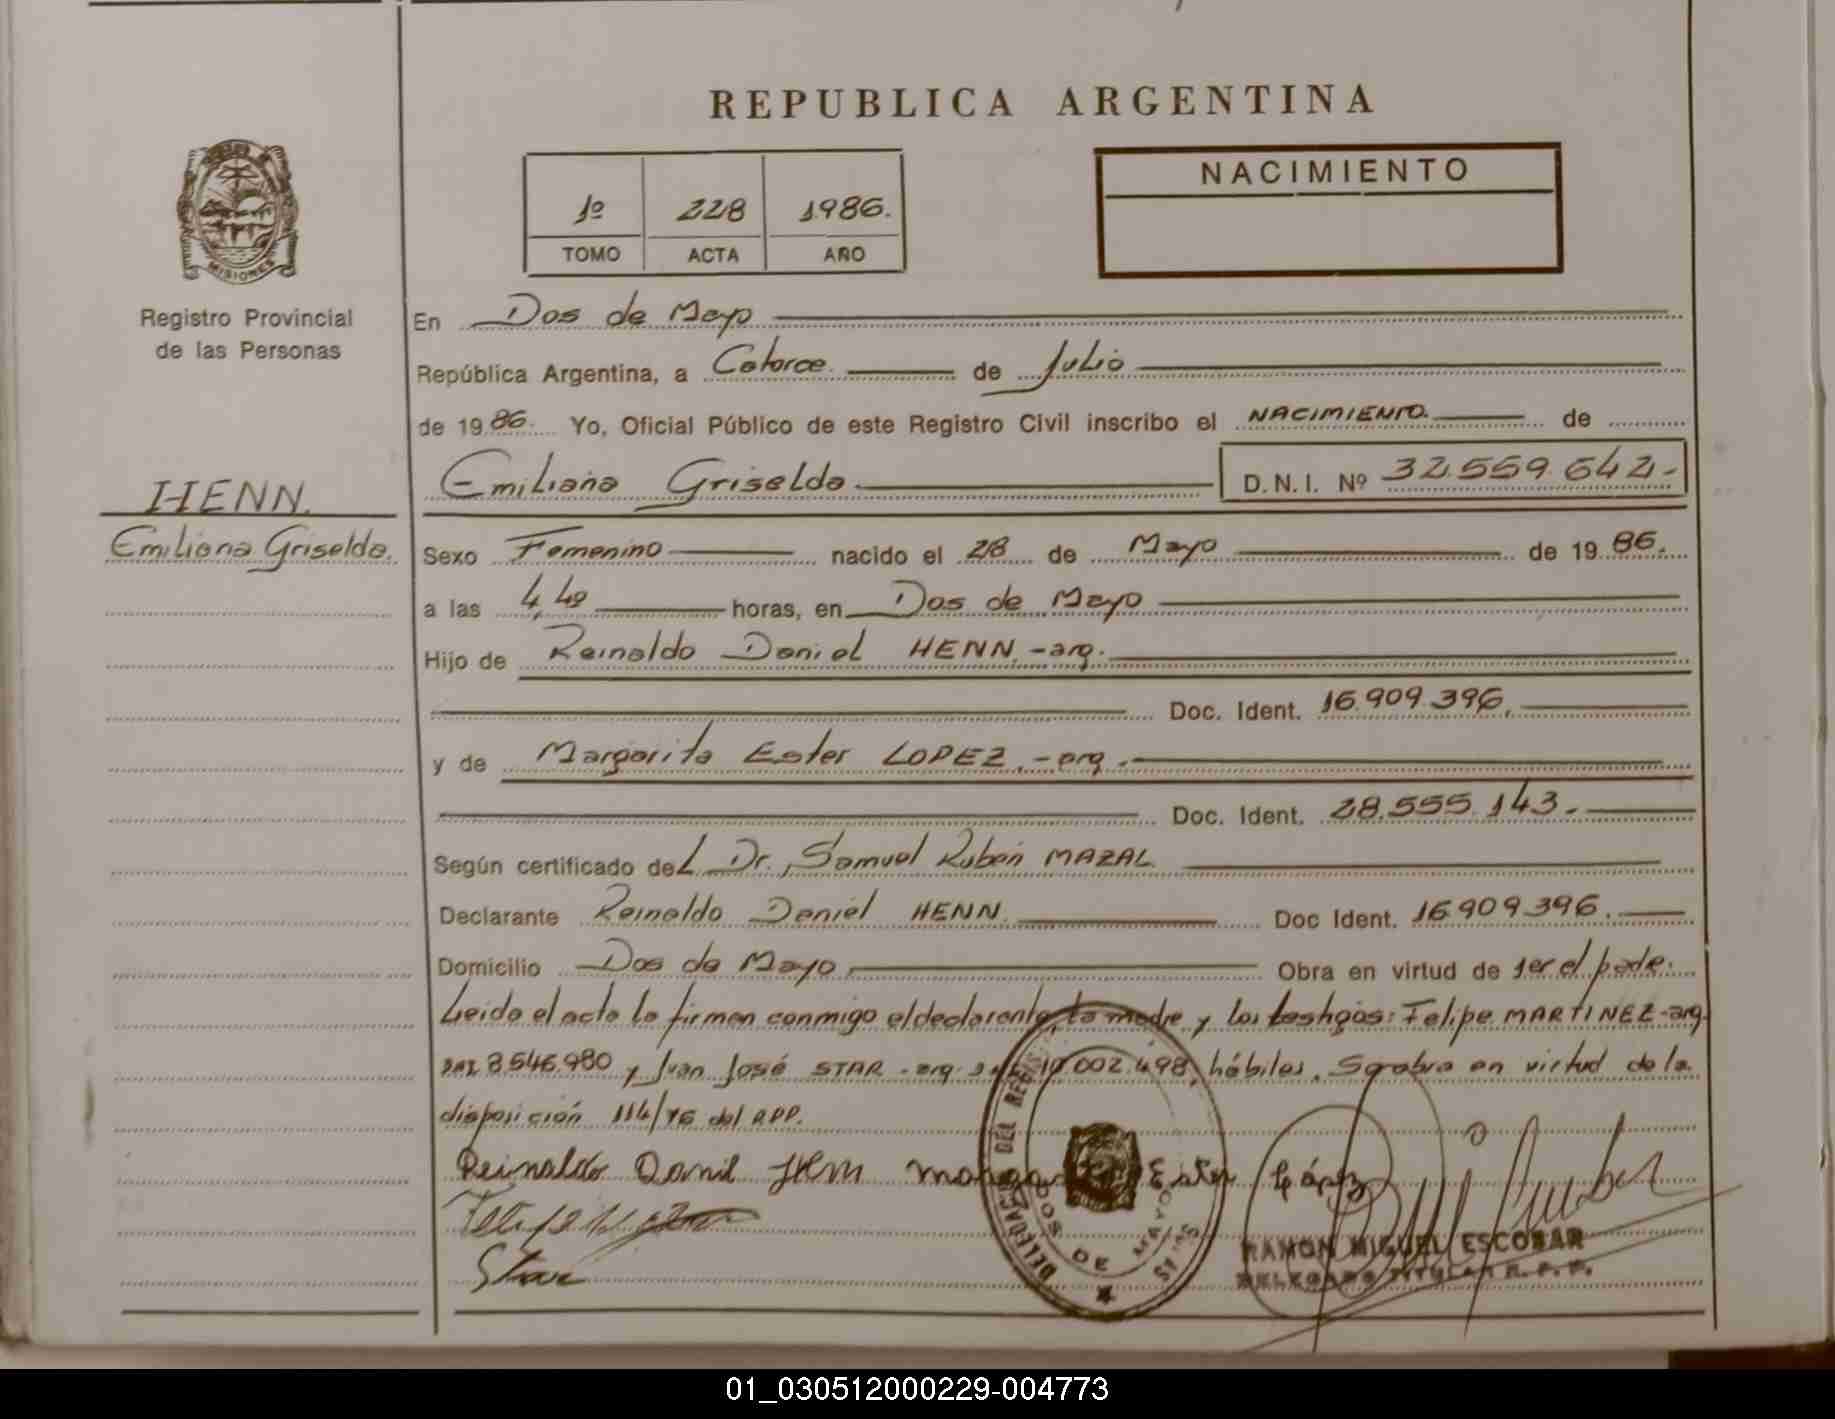 REPUBLICA ARGENTINA
1º 228 1986.
TOMO ACTA AÑO
NACIMIENTO
MISIONES
Registro Provincial
de las Personas
HENN.
Emiliana Griselda.
En Dos de Mayo
República Argentina, a Catorce de Julio
de 1986. Yo, Oficial Público de este Registro Civil inscribo el NACIMIENTO. de
Emiliana Griselda D.N.I. Nº 32.559.642-
Sexo Femenino nacido el 28 de Mayo de 1986.
a las 4,40 horas, en Dos de Mayo
Hijo de Reinaldo Daniel HENN.-arg.
Doc. Ident. 16.909.396.
y de Margarita Ester LOPEZ.-arg.-
Doc. Ident. 28.555.143.-
Según certificado del Dr. Samuel Rubén MAZAL
Declarante Reinaldo Daniel HENN. Doc Ident. 16.909.396.
Domicilio Dos de Mayo, Obra en virtud de ser el padre.
Leida el acta la firman conmigo el declarante, la madre y los testigos: Felipe MARTINEZ-arg.
DNI 8.546.980 y Juan José STAR-arg. 10.002.498, hábiles. Se obra en virtud de la
disposición 114/76 del RPP.
Reinaldo Danil Henn Margarita Ester López
Star
DELEGACION DEL REGIS
DOS DE MAYO
RAMON MIGUEL ESCOBAR
DELEGADO TITULAR R. P. P.
01_030512000229-004773